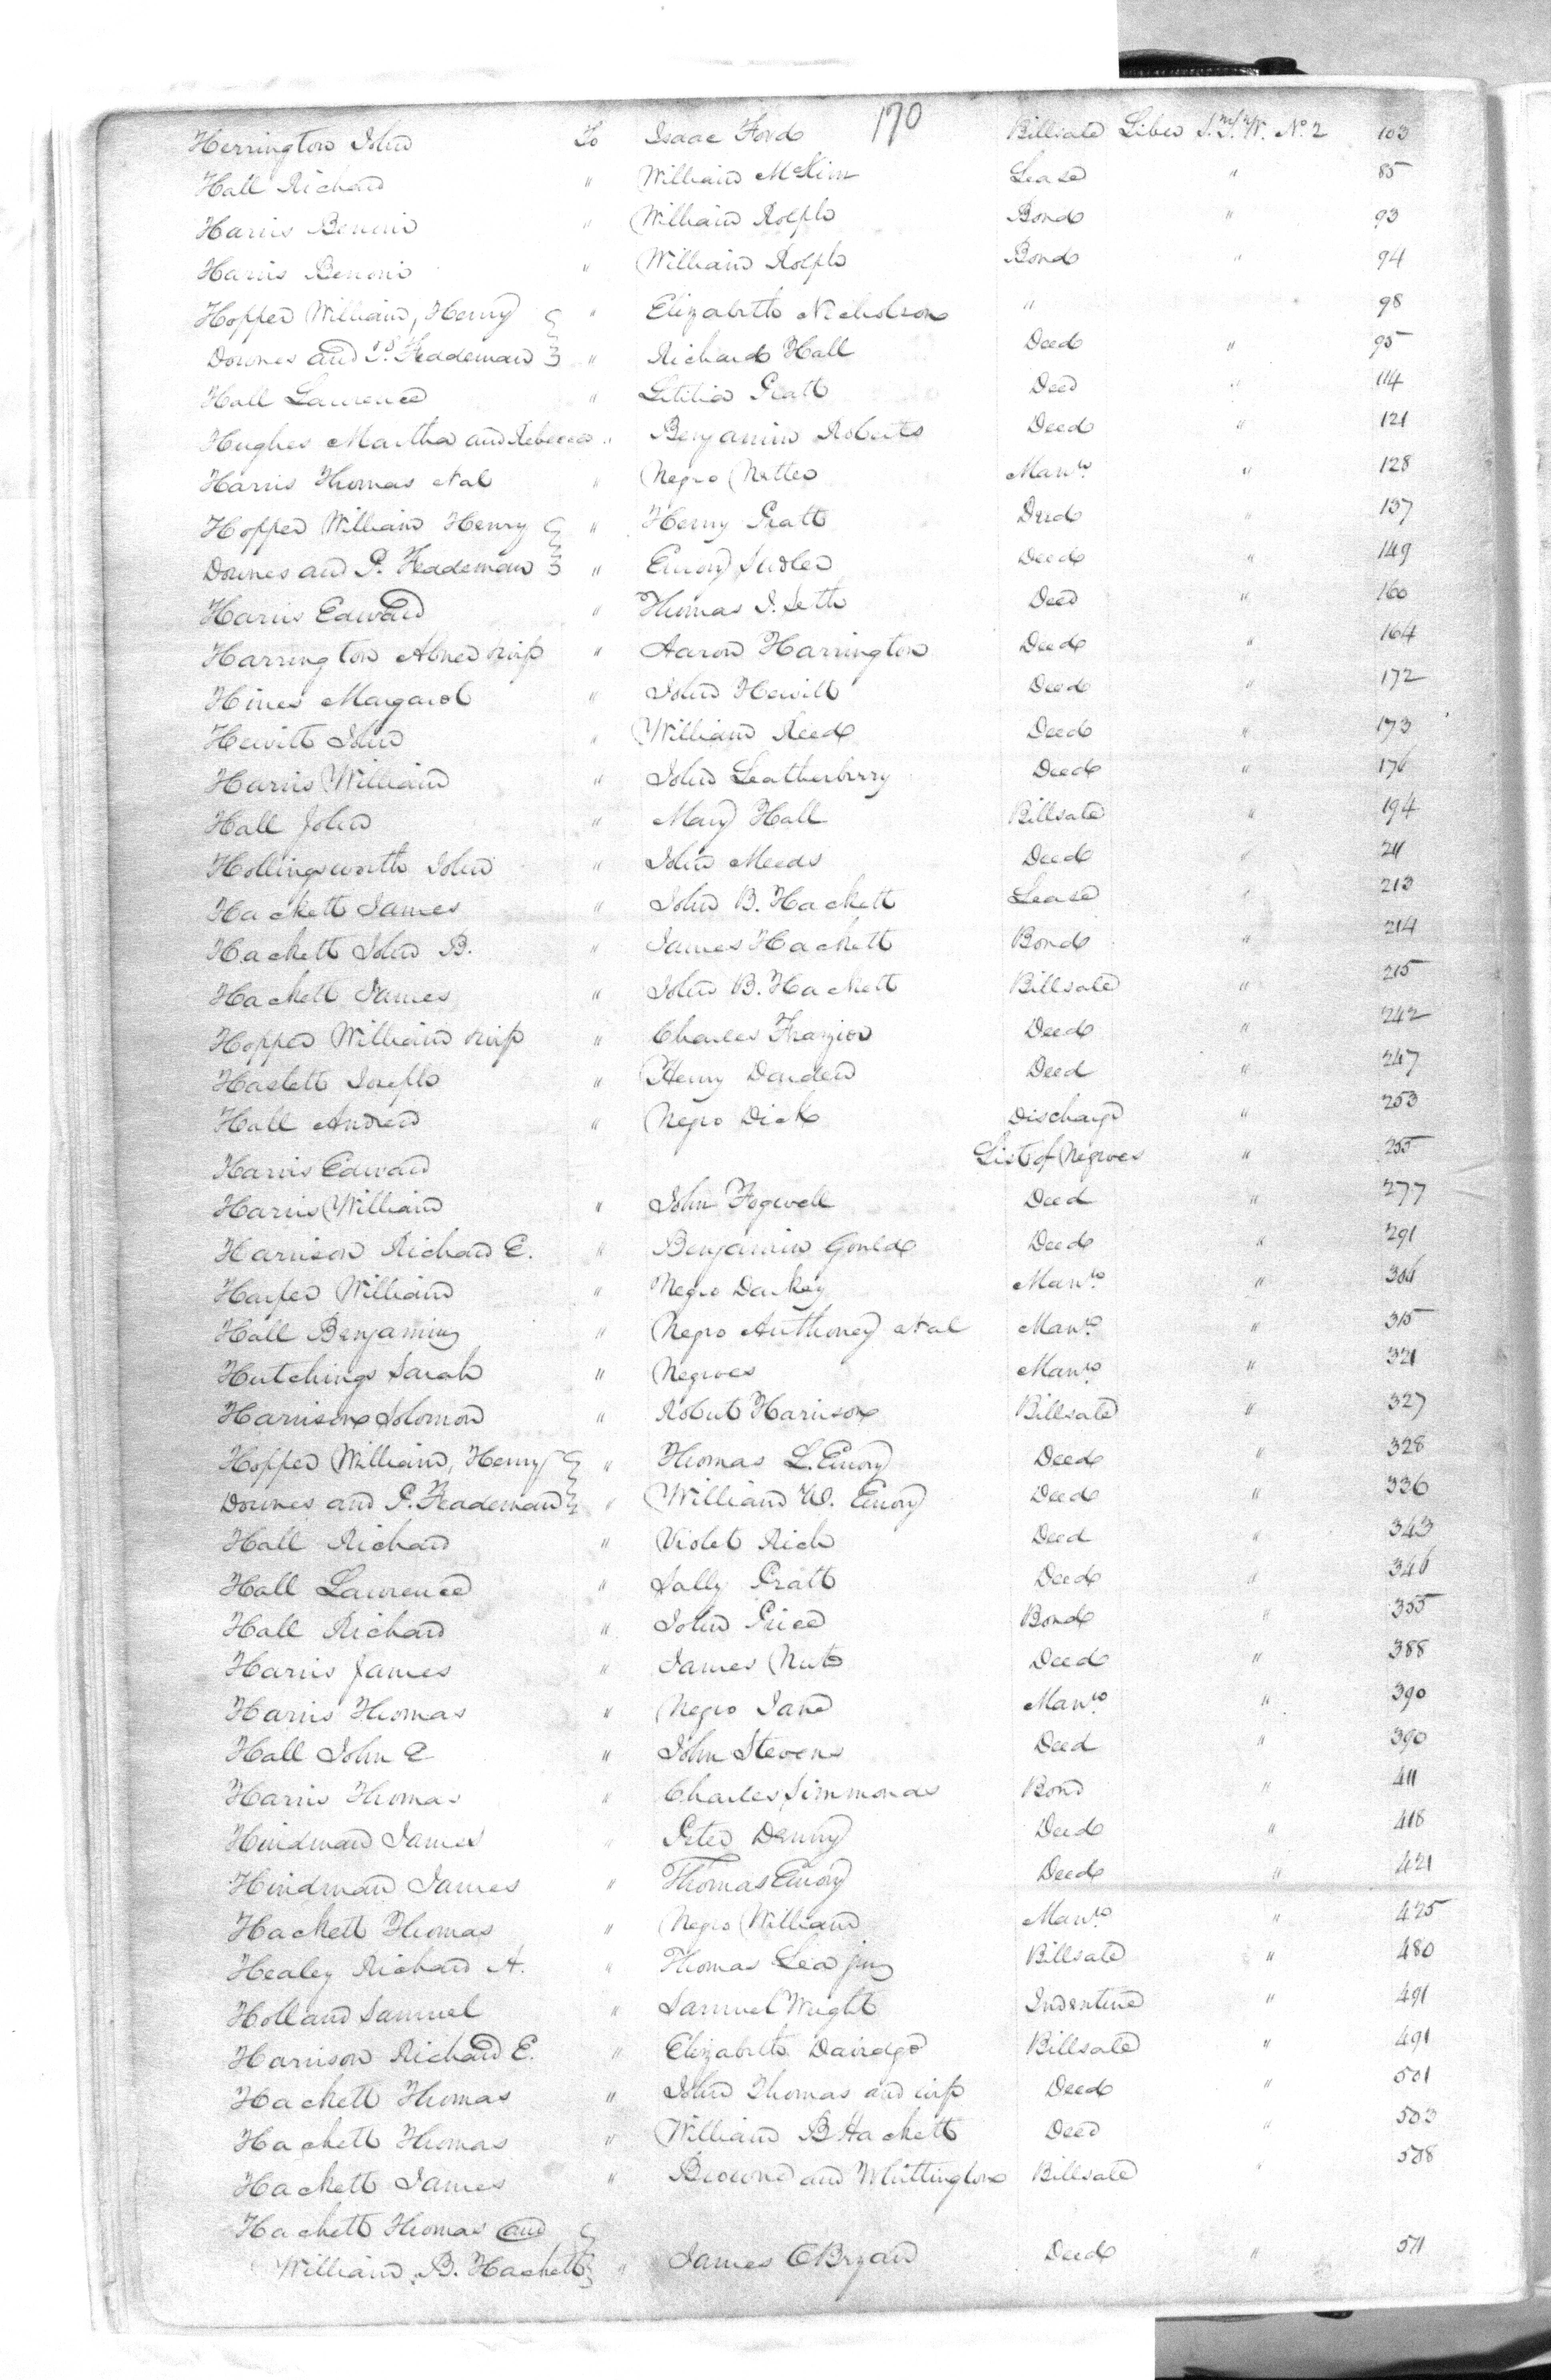 170
Herrington John To Isaac Ford Billsale Liber S.T.W. No. 2 103
Hall Richard " William McKim Lease " 85
Harris Benoni " William Rolph Bond " 93
Harris Benoni " William Rolph Bond " 94
Hopper William, Henry " Elizabeth Nicholson " 98
Downes and P. Feddeman " Richard Hall Deed " 95
Hall Laurence " Letitia Pratt Deed " 114
Hughes Martha and Rebecca " Benjamin Roberts Deed " 121
Harris Thomas et al " Negro Man.o " 128
Hopper William Henry " Henry Pratt Deed " 137
Downes and P. Feddeman " Emory Sudler Deed " 149
Harris Edward " Thomas I. Seth Deed " 160
Harrington Abner " Aaron Harrington Deed " 164
Hines Margaret " John Hewitt Deed " 172
Hewitt John " William Reed Deed " 173
Harris William " John Leatherbrry Deed " 176
Hall John " Mary Hall Billsale " 194
Hollingsworth John " John Meeds Deed " 211
Hackett James " John B. Hackett Lease " 213
Hackett John B. " James Hackett Bond " 214
Hackett James " John B. Hackett Billsale " 215
Hopper William " Charles Frazier Deed " 242
Haslett Joseph " Henry Darden Deed " 247
Hall Andrew " Negro Dick Discharge " 253
Harris Edward List of Negroes " 255
Harris William " John Fogwell Deed " 277
Harrison Richard E. " Benjamin Gould Deed " 291
Harper William " Negro Darkey Man.o "
Hall Benjamin " Negro Anthoney et al Man.o " 315
Hutchings Sarah " Negroes Man.o " 321
Harrison Solomon " Robert Harrison Billsale " 327
Hopper William, Henry " Thomas L. Emory Deed " 328
Downes and P. Feddeman " William W. Emory Deed " 336
Hall Richard " Violet Rich Deed " 343
Hall Laurence " Sally Pratt Deed " 346
Hall Richard " John Price Bond " 355
Harris James " James Nuts Deed " 388
Harris Thomas " Negro Jane Man.o " 390
Hall John E " John Stevens Deed " 390
Harris Thomas " Charles Simmonds Bond " 411
Hindman James " Peter Denny Deed " 418
Hindman James " Thomas Emory Deed " 421
Hackett Thomas " Negro William Man.o " 425
Healey Richard A. " Thomas Lea jun Billsale " 480
Holland Samuel " Samuel Wright Indenture " 491
Harrison Richard E. " Elizabeth Billsale " 491
Hackett Thomas " John Thomas and wife Deed " 501
Hackett Thomas " William B Hackett Deed " 503
Hackett James " Browne and Whittington Billsale " 508
Hackett Thomas and
William B. Hackett " James OBryan Deed " 511